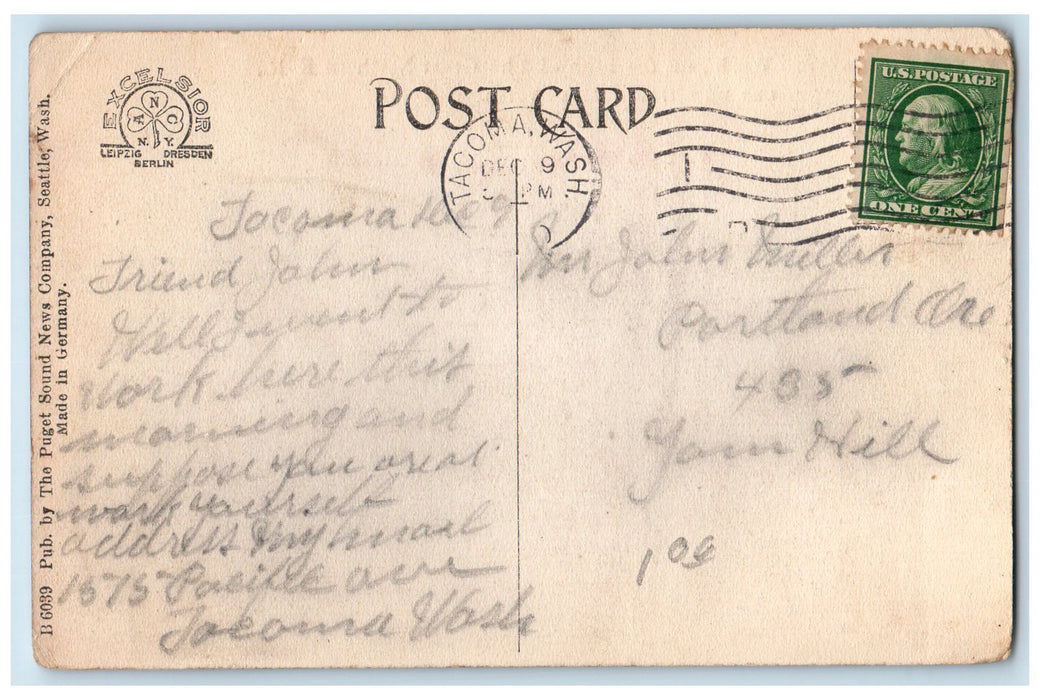 EXCELSIOR
N
A C
N.Y.
LEIPZIG DRESDEN
BERLIN
POST CARD
TACOMA, WASH.
DEC 9
PM
U.S. POSTAGE
ONE CENT
B 6039 Pub. by The Puget Sound News Company, Seattle, Wash.
Made in Germany.
Tacoma Dec 9
Friend John
Well I went to
work here this
morning and
suppose you are at
work yourself
address my mail
1515 Pacific ave
Tacoma Wash
Mr John Miller
Portland Ore
435
Yam Hill
1 00